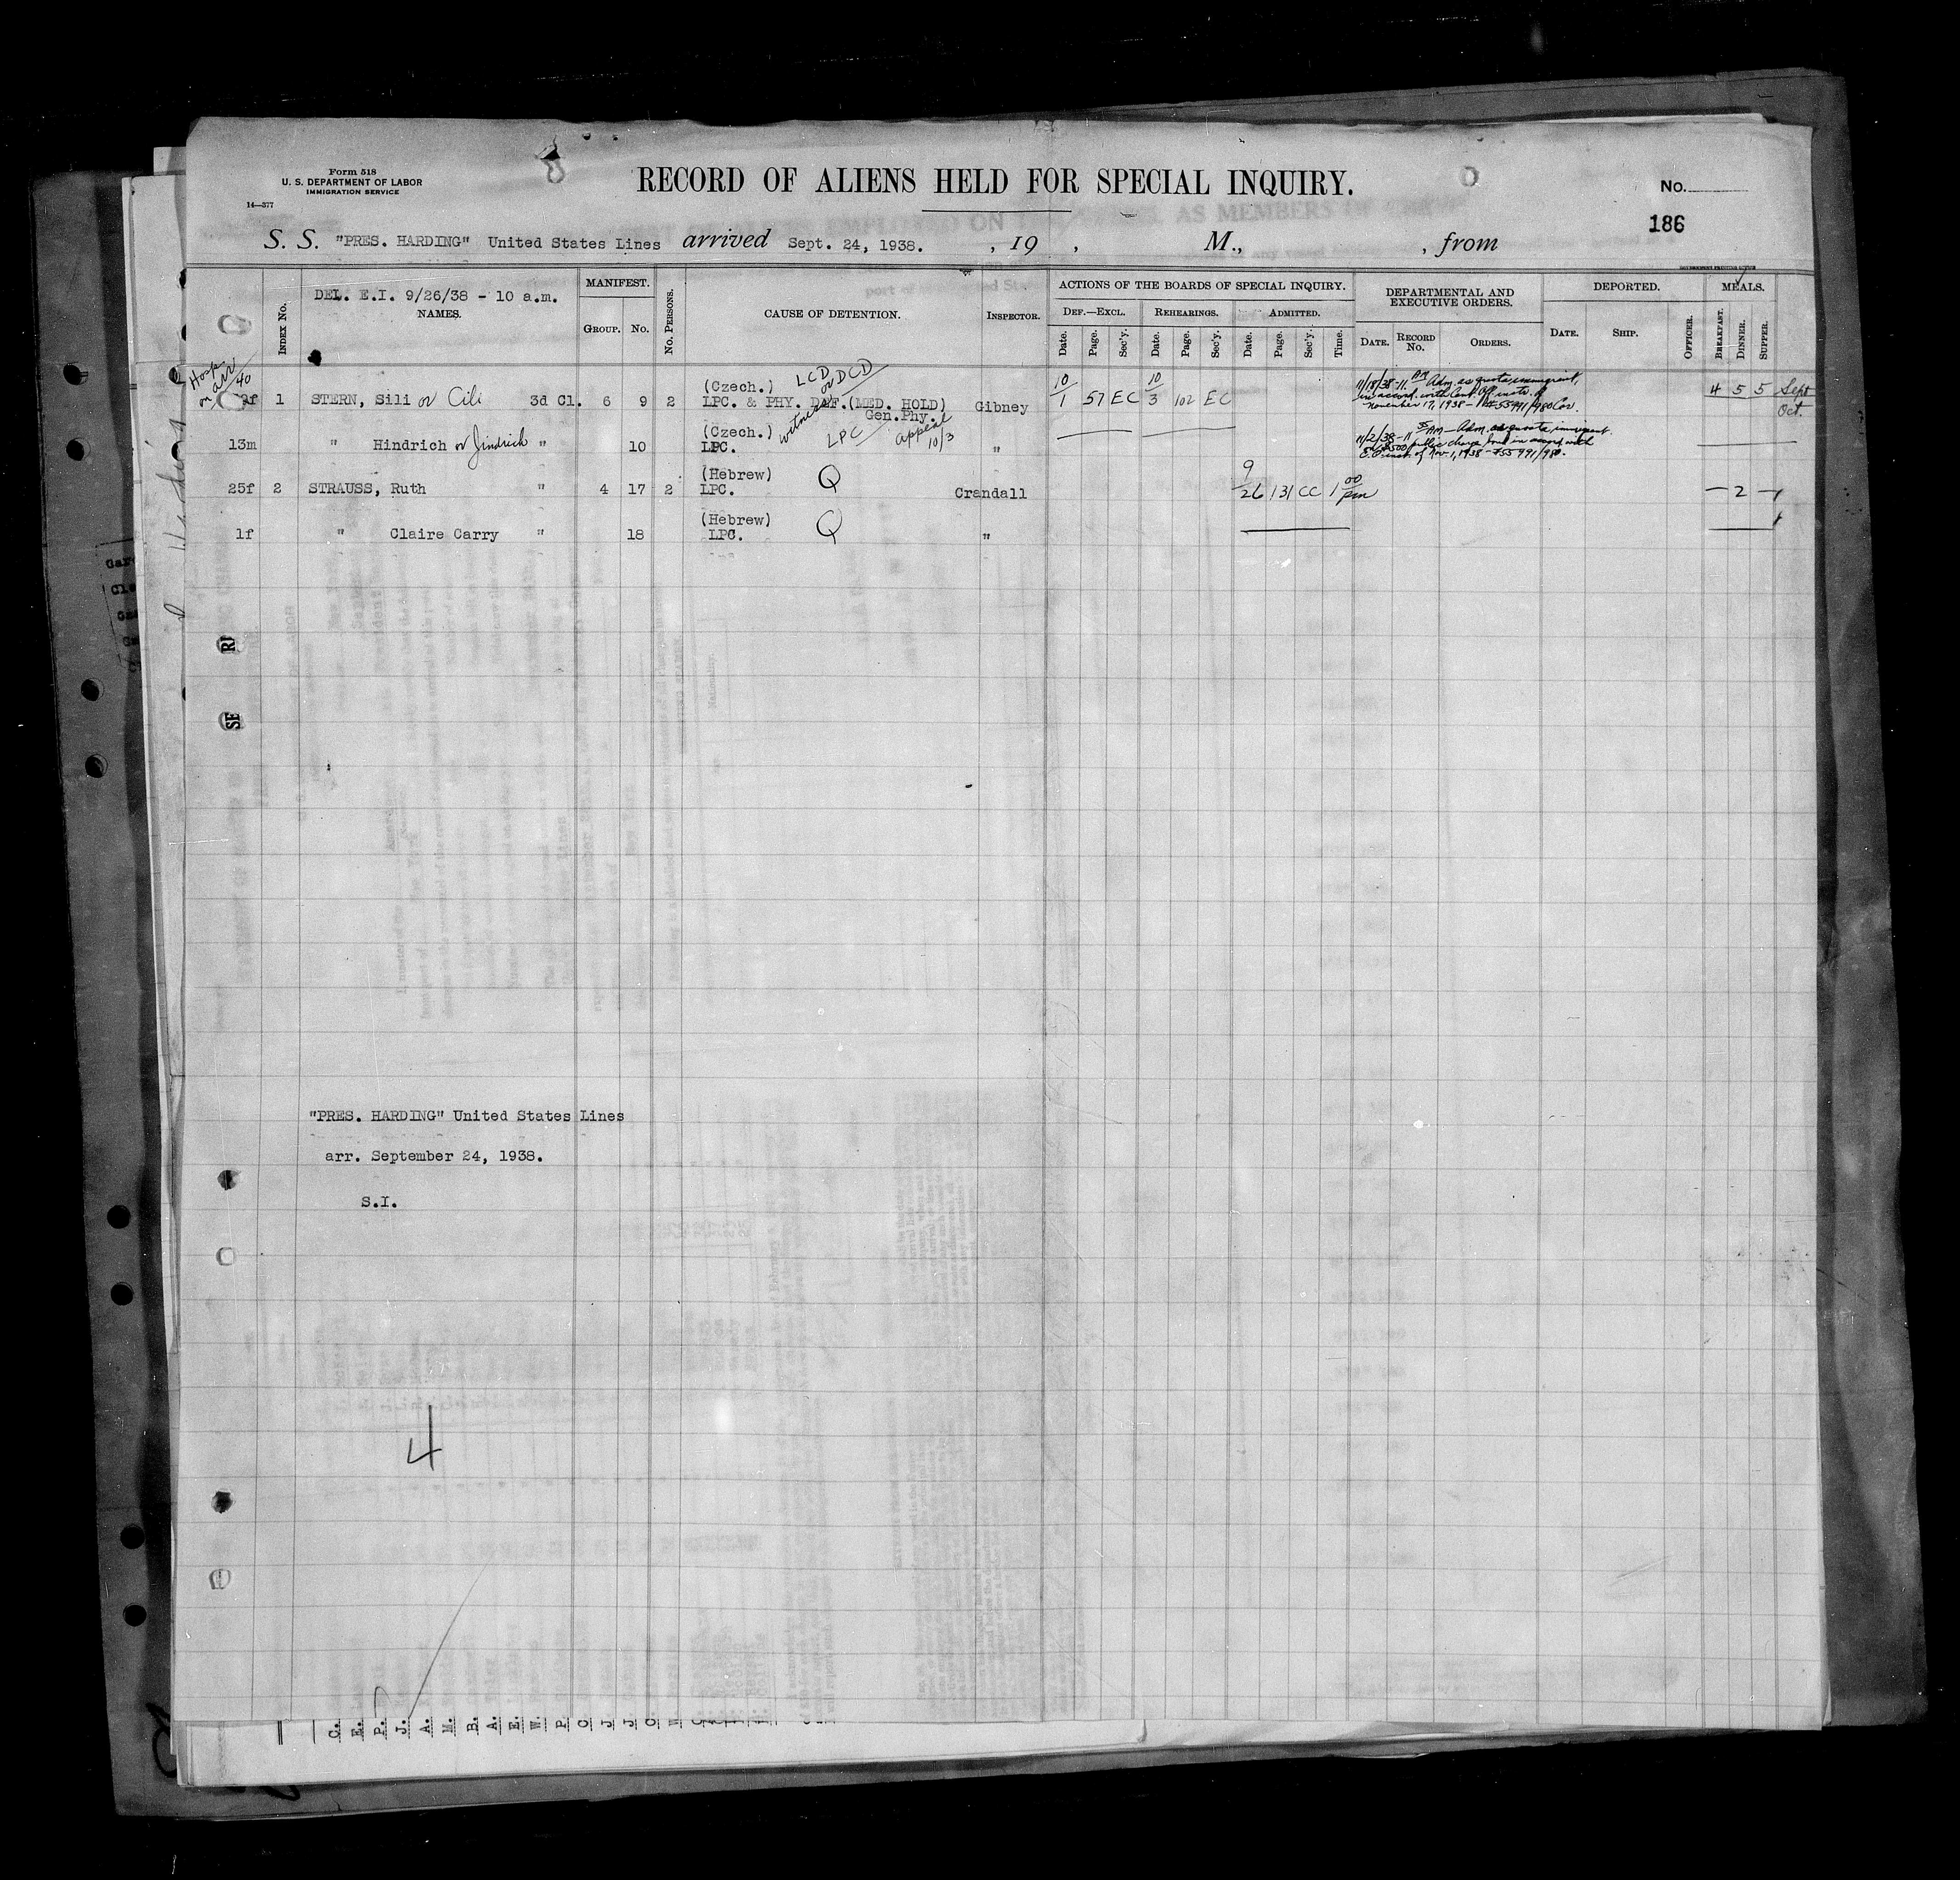 Form 518
U. S. DEPARTMENT OF LABOR
IMMIGRATION SERVICE
14—377
RECORD OF ALIENS HELD FOR SPECIAL INQUIRY.
No.
186
S. S. "PRES. HARDING" United States Lines arrived Sept. 24, 1938. , 19 , M., , from
DEL. E.I. 9/26/38 - 10 a.m.
INDEX No. NAMES. MANIFEST. GROUP. No. No. PERSONS. CAUSE OF DETENTION. INSPECTOR.
ACTIONS OF THE BOARDS OF SPECIAL INQUIRY.
DEF.—EXCL. REHEARINGS. ADMITTED.
Date. Page. Sec'y. Date. Page. Sec'y. Date. Page. Sec'y. Time.
DEPARTMENTAL AND EXECUTIVE ORDERS.
DATE. RECORD No. ORDERS.
DEPORTED.
DATE. SHIP. OFFICER.
MEALS.
BREAKFAST. DINNER. SUPPER.
Hosp on arr
40
1 STERN, Sili or Cili 3d Cl. 6 9 2 (Czech.) LCD or DCD
LPC. & PHY. DEF. (MED. HOLD) Gibney 10/1 57 EC 10/3 102 EC
Gen. Phy.
witness
11/18/38-11 AM Adm. as quota immigrant,
in accord. with Cent. Off. instr. of
November 17, 1938 - 55991/980 Cor.
4 5 5 Sept
Oct.
13m " Hindrich or Jindrich " 10 (Czech.)
LPC. LPC appeal 10/3 "
11/2/38-11 AM - Adm. as quota immigrant
on $500 public charge bond in accord with
of Nov. 1, 1938 - 55991/980.
25f 2 STRAUSS, Ruth " 4 17 2 (Hebrew)
LPC. Q Crandall 9/26 131 CC 1 00 pm — 2 —
1f " Claire Carry " 18 (Hebrew)
LPC. Q "
RI
SE
"PRES. HARDING" United States Lines
arr. September 24, 1938.
S.I.
4
C. E. P. J. A. M. B. A. E. W. P C J J C W